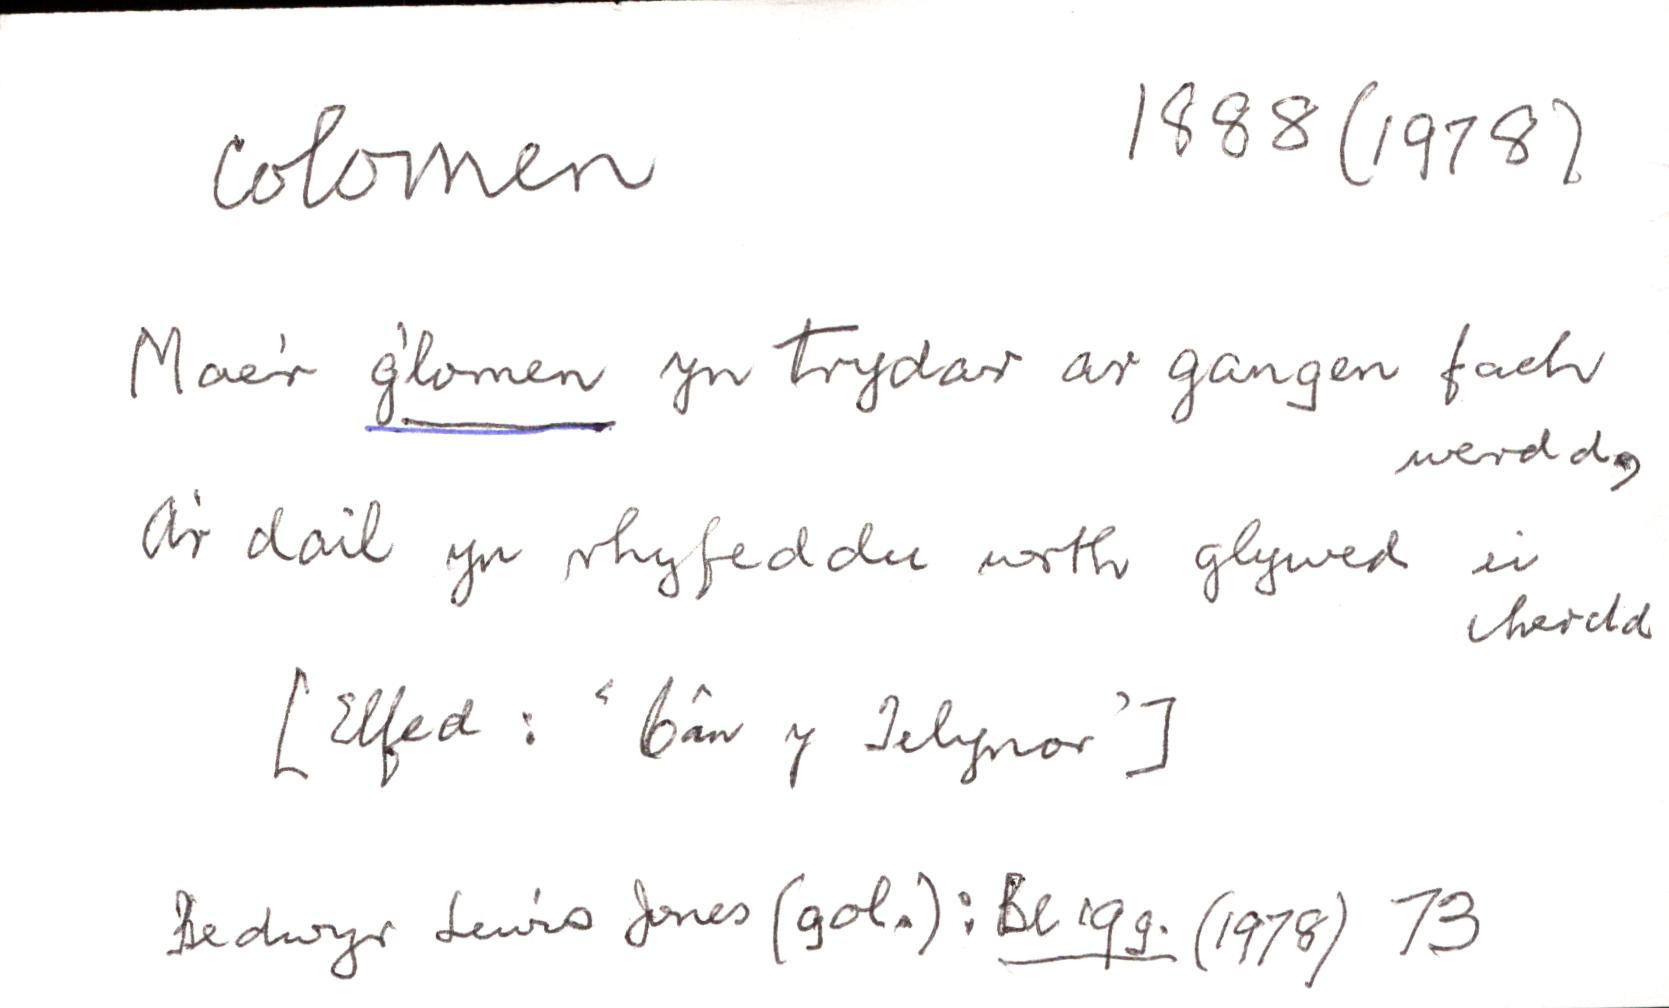 colomen 1888 (1978)
Mae'r g'lomen yn trydar ar gangen fach
werdd,
A'r dail yn rhyfeddu wrth glywed ei
cherdd
[Elfed : 'Cân y Telynor']
Bedwyr Lewis Jones (gol.) : Bl 19g. (1978) 73